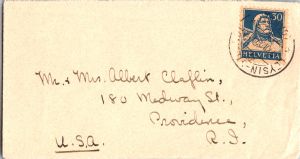 30
HELVETIA
LYSIN
Mr. & Mrs. Albert Claflin,
180 Medway St.,
Providence,
U.S.A. R.I.